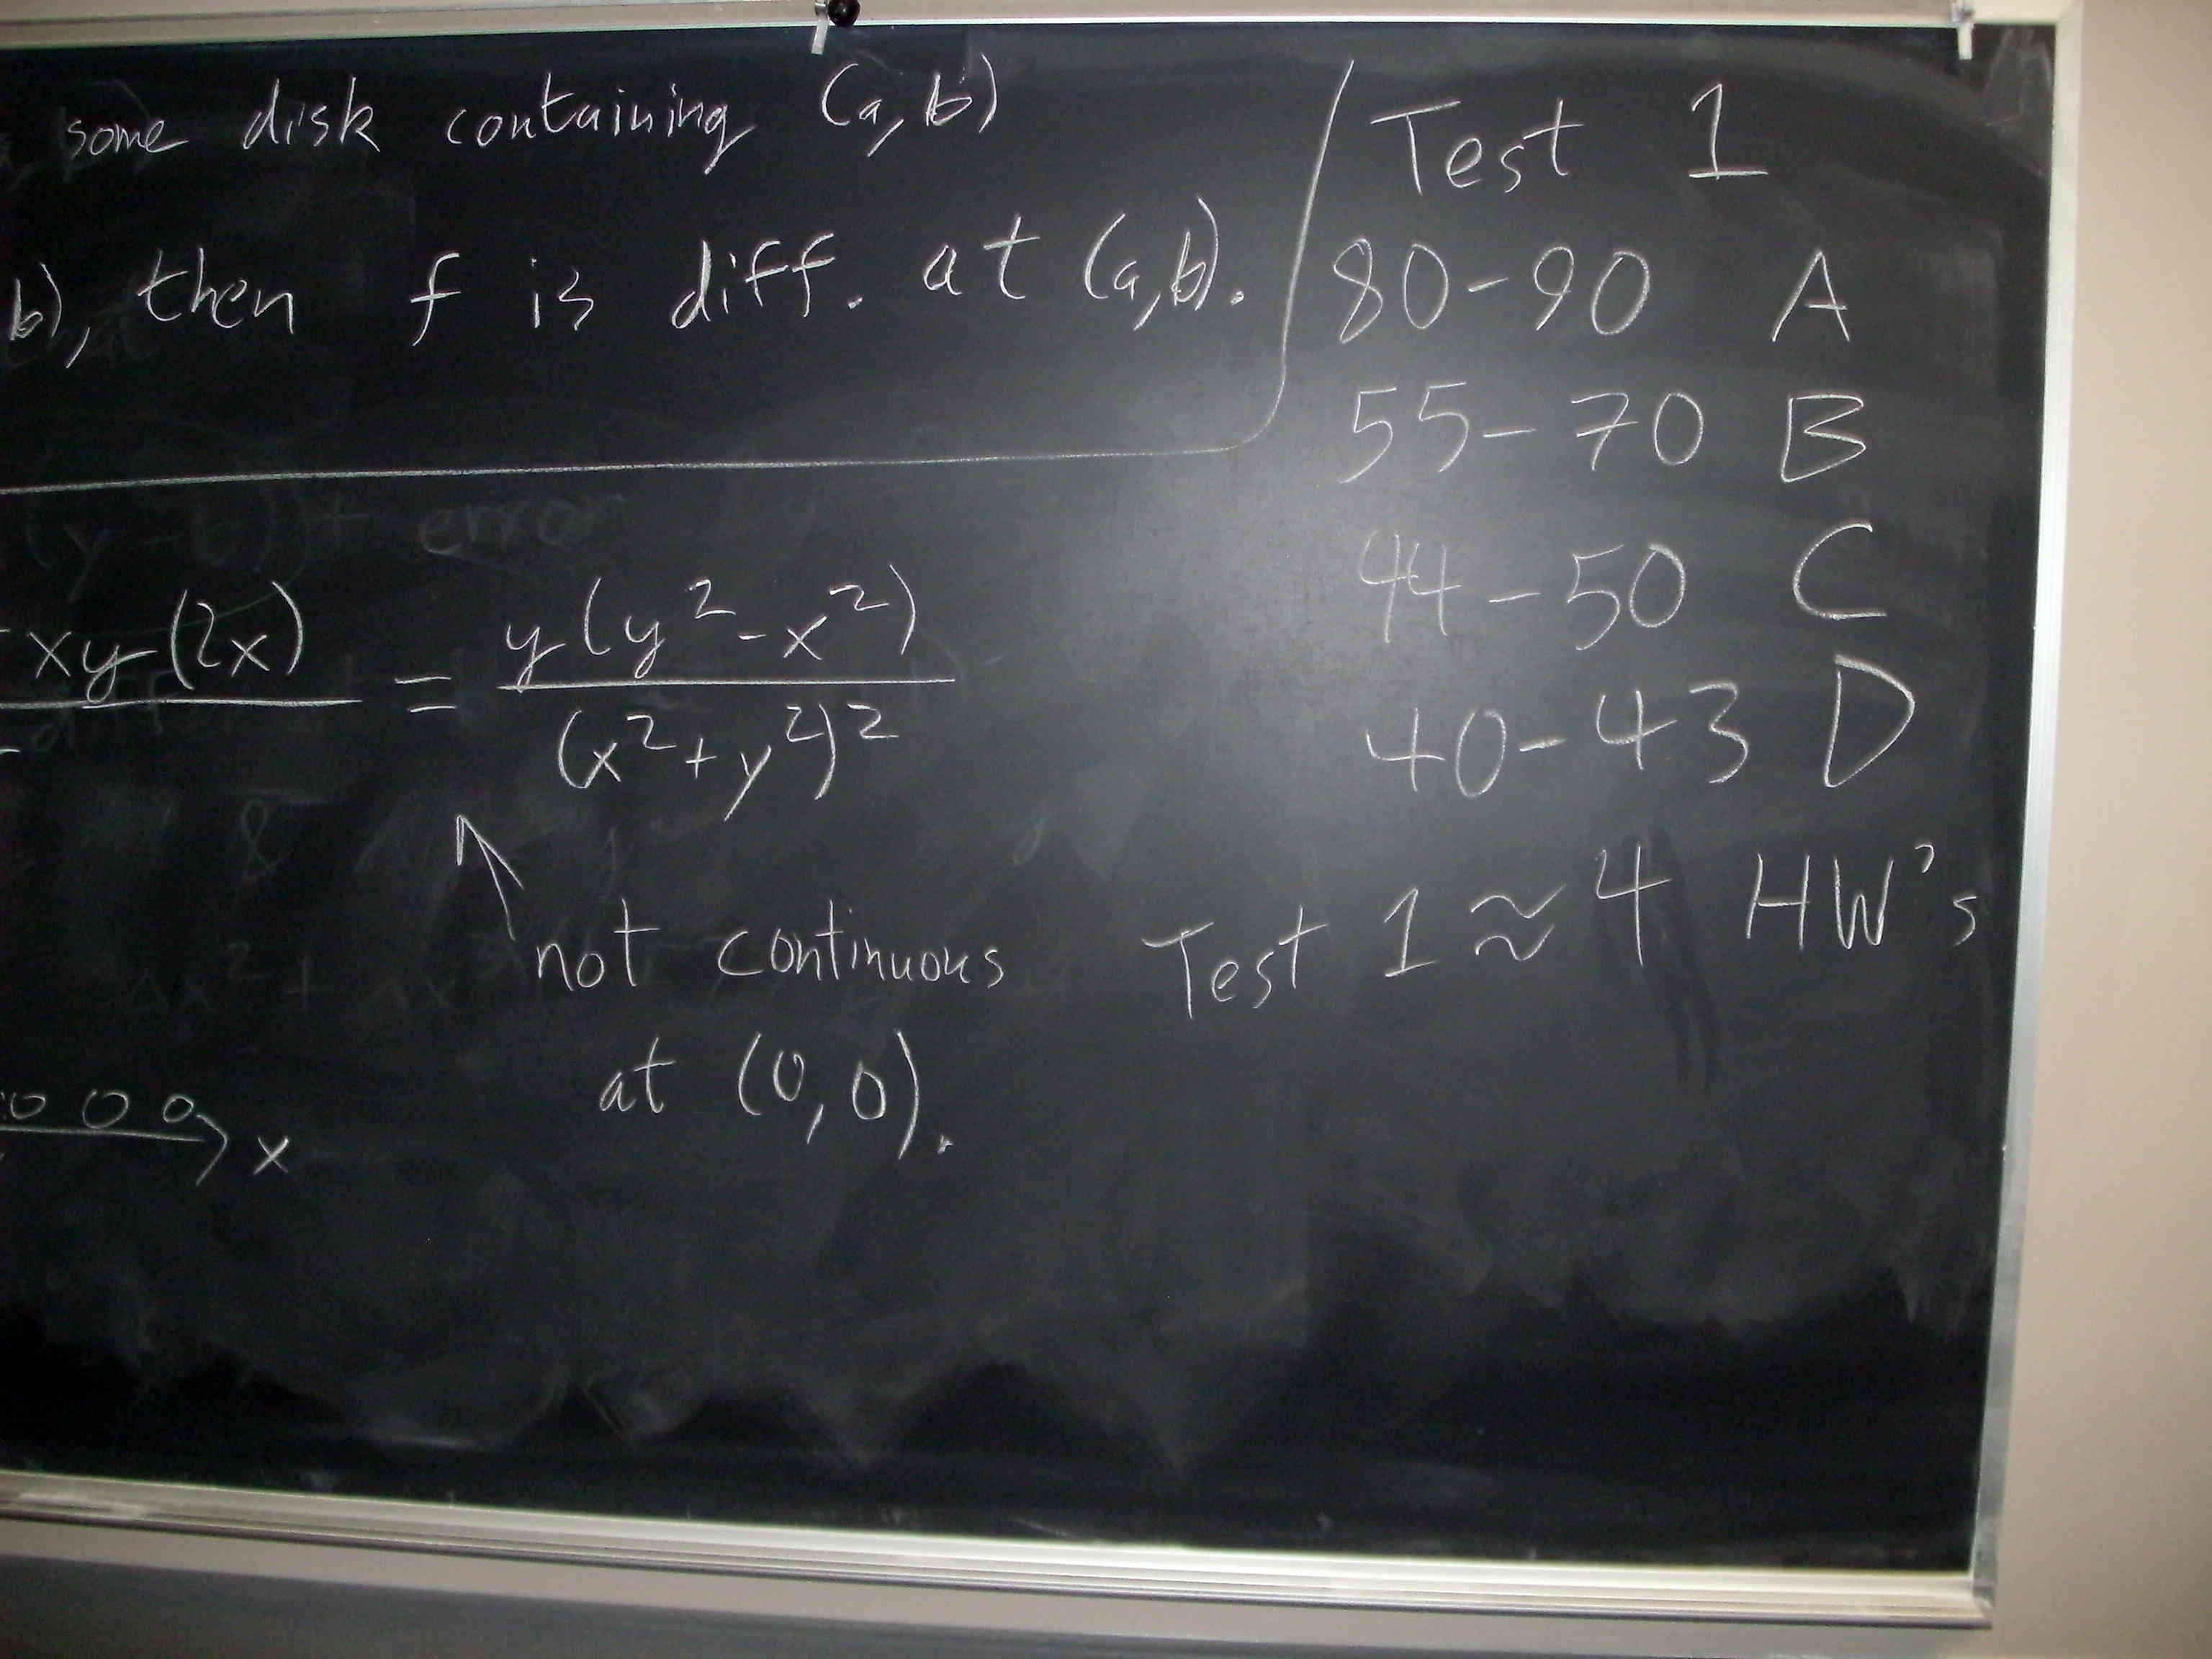 some disk containing (a,b)
b), then f is diff. at (a,b).
(y-b) + error
xy(2x) = y(y²-x²)
(x²+y²)²
not continuous
at (0,0).
x
Test 1
80-90 A
55-70 B
44-50 C
40-43 D
Test 1 ≈ 4 HW's